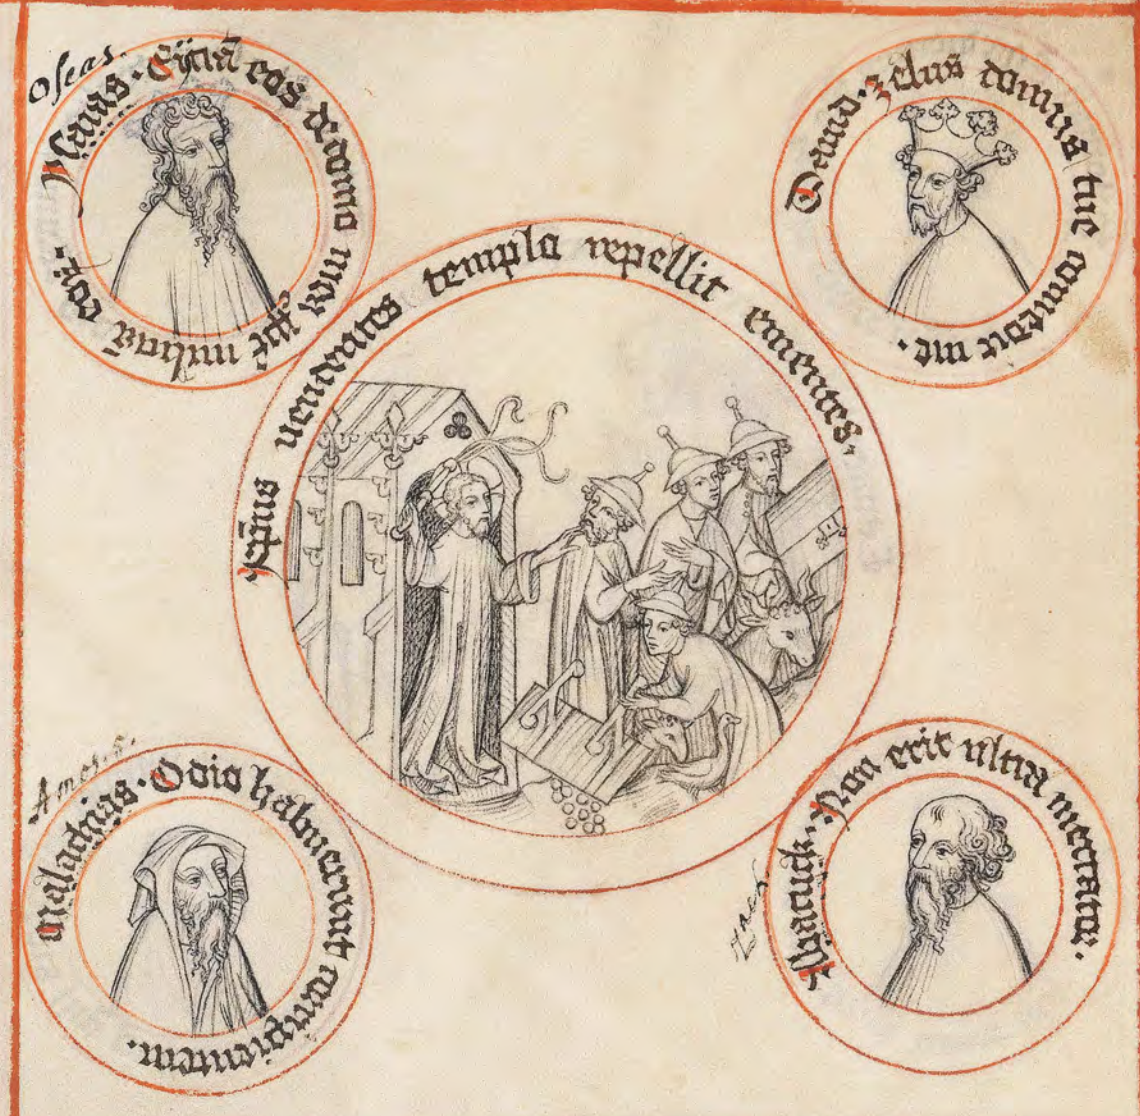 Oseas.
Ysaias · Eÿciā eos de domo mea eoꝝ ·
Dauid · zelus domus tue comedit me ·
xp̄us uendentes templo repellit ementes.
Amos
Malachias · Odio habuerunt corripientem.
Zach
Abacuck · Non erit ultra mercator.